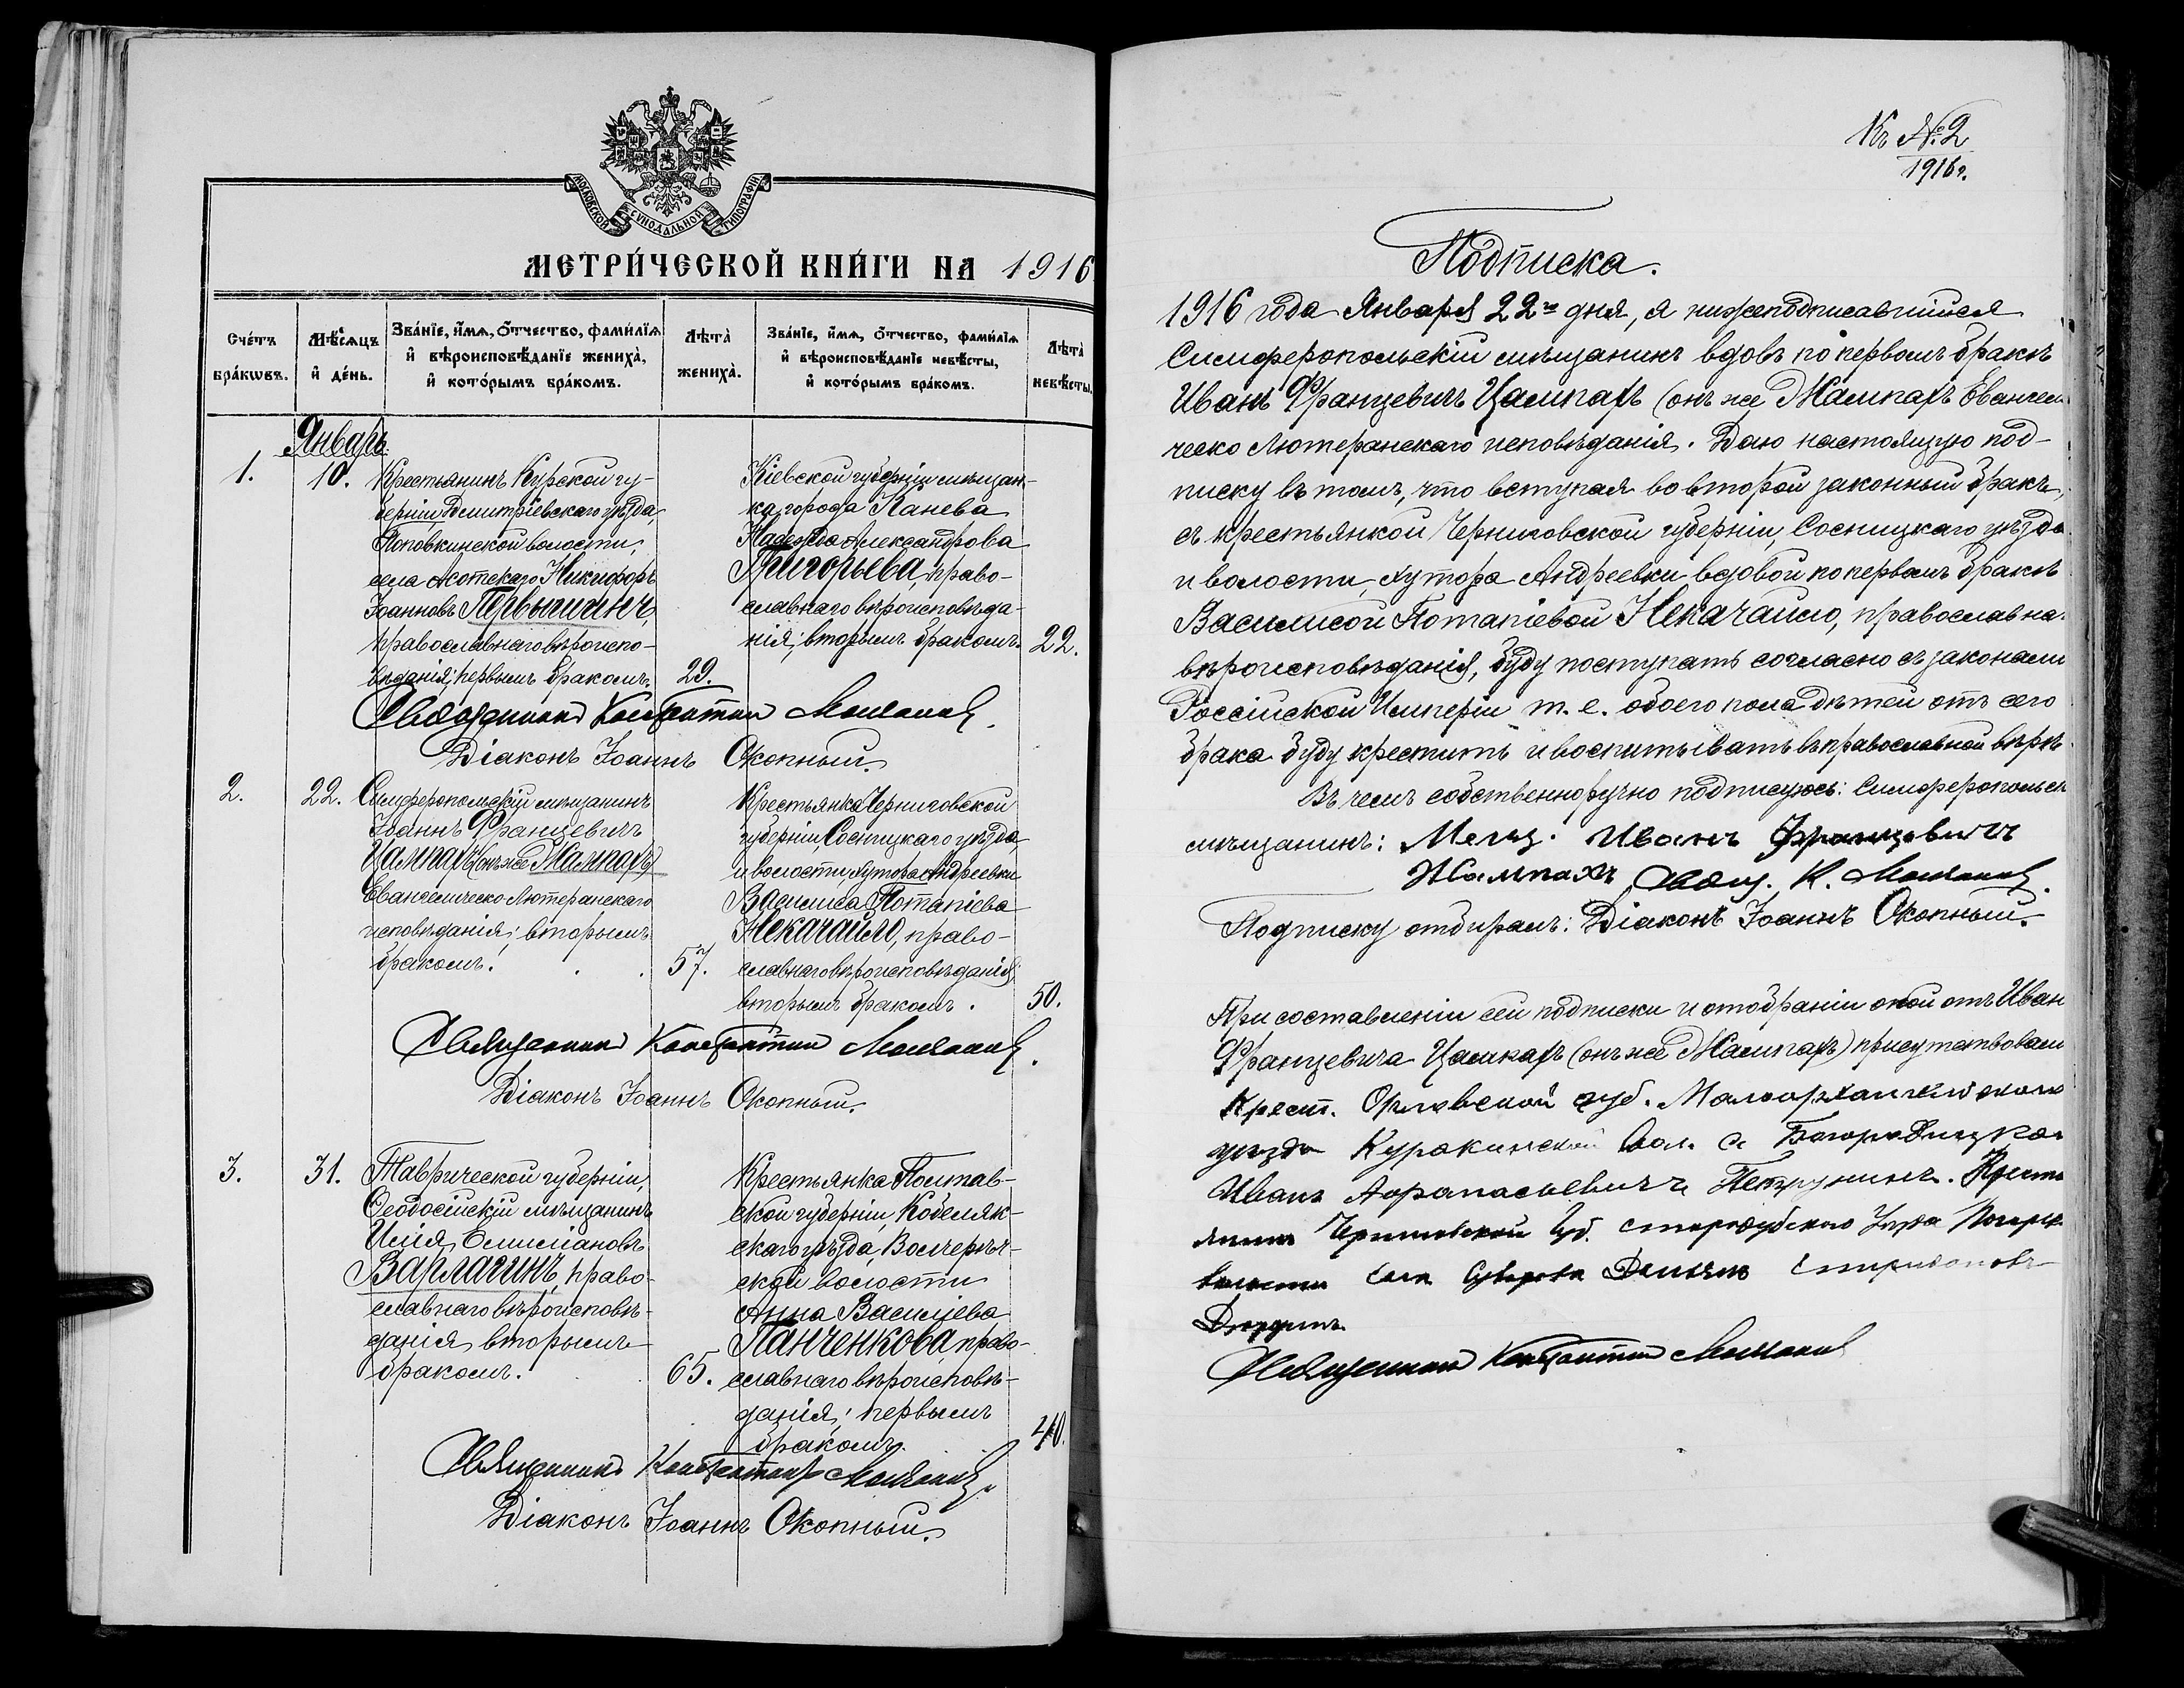 МОСКОВСКОЙ СѴНОДАЛЬНОЙ ТИПОГРАФІИ
МЕТРИ́ЧЕСКОЙ КНИ́ГИ НА 1916
Сче́тъ бра́кѡвъ.
Мѣ́сѧцъ и҆ де́нь.
Зва́нїе, и҆́мѧ, ѻ҆́тчество, фами́лїѧ и҆ вѣроисповѣ́данїе жениха̀, и҆ кото́рымъ бра́комъ.
Лѣта̀ жениха̀.
Зва́нїе, и҆́мѧ, ѻ҆́тчество, фами́лїѧ и҆ вѣроисповѣ́данїе невѣ́сты, и҆ кото́рымъ бра́комъ.
Лѣта̀ невѣ́сты.
Январь.
1.
10.
Крестьянинъ Курской гу-
берніи, Дмитріевскаго уѣзда,
Поповкинской волости,
села Никифоръ
Іоанновъ Первышинъ,
православнаго вѣроиспо-
вѣданія; первымъ бракомъ.
29.
Кіевской губерніи мѣщан-
ка города Канева
Надежда Александрова
Григорьева, право-
славнаго вѣроисповѣда-
нія; вторымъ бракомъ.
22.
Священникъ Константин
Діаконъ Іоаннъ Окопный.
2.
22.
Симферопольскій мѣщанинъ
Іоаннъ Францевичъ
Цампахъ (онъ же Жампахъ)
Евангелическо Лютеранскаго
исповѣданія; вторымъ
бракомъ.
57.
Крестьянка Черниговской
губерніи, Сосницкаго уѣзда,
и волости, хутора Андреевки
Василиса Потапіева
Некачайло, право-
славнаго вѣроисповѣданія;
вторымъ бракомъ.
50.
Священникъ Константин
Діаконъ Іоаннъ Окопный.
3.
31.
Таврической губерніи,
Ѳеодосійскій мѣщанинъ
Илія Емиліановъ
Варлагинъ, право-
славнаго вѣроисповѣ-
данія вторымъ
бракомъ.
65.
Крестьянка Полтав-
ской губерніи, Кобеляк-
скаго уѣзда,
ской волости
Анна Василіева
Панченкова, право-
славнаго вѣроисповѣ-
данія; первымъ
бракомъ.
40.
Священникъ Константин
Діаконъ Іоаннъ Окопный.
Къ №2
1916г.
Подписка.
1916 года Января 22го дня, я нижеподписавшийся
Симферопольскій мѣщанинъ вдовъ по первомъ бракѣ
Иванъ Францевичъ Цампахъ (онъ же Жампахъ Евангели
ческо Лютеранскаго исповѣданія. Даю настоящую под-
писку въ томъ, что вступая во второй законный бракъ,
съ крестьянкой Черниговской губерніи, Сосницкаго уѣзда
и волости, хутора Андреевки вдовой по первомъ бракѣ
Василисой Потапіевой Некачайло, православна.
вѣроисповѣданія, буду поступать согласно съ законами
Россійской Имперіи т. е. обоего пола дѣтей отъ сего
брака буду крестить и воспитывать въ православной вѣрѣ.
Въ чемъ собственноручно подписуюсь: Симферопольск
мѣщанинъ: Иванъ Францевичъ
Жампахъ Свящ. К.
Подписку отбиралъ: Діаконъ Іоаннъ Окопный.
При составленіи сей подписки и отобраніи оной отъ Иван
Францевича Цампахъ (онъ же Жампахъ) присутствовали
Крест. Орловской губ. Малоархангельскаго
уѣзда Куракинской вол. с. Богородицкое
Иванъ Афанасьевичъ Петрунинъ. Кресть
янинъ Черниговской Губ. Стародубскаго
волости села Спиридоновъ
Священникъ Константин